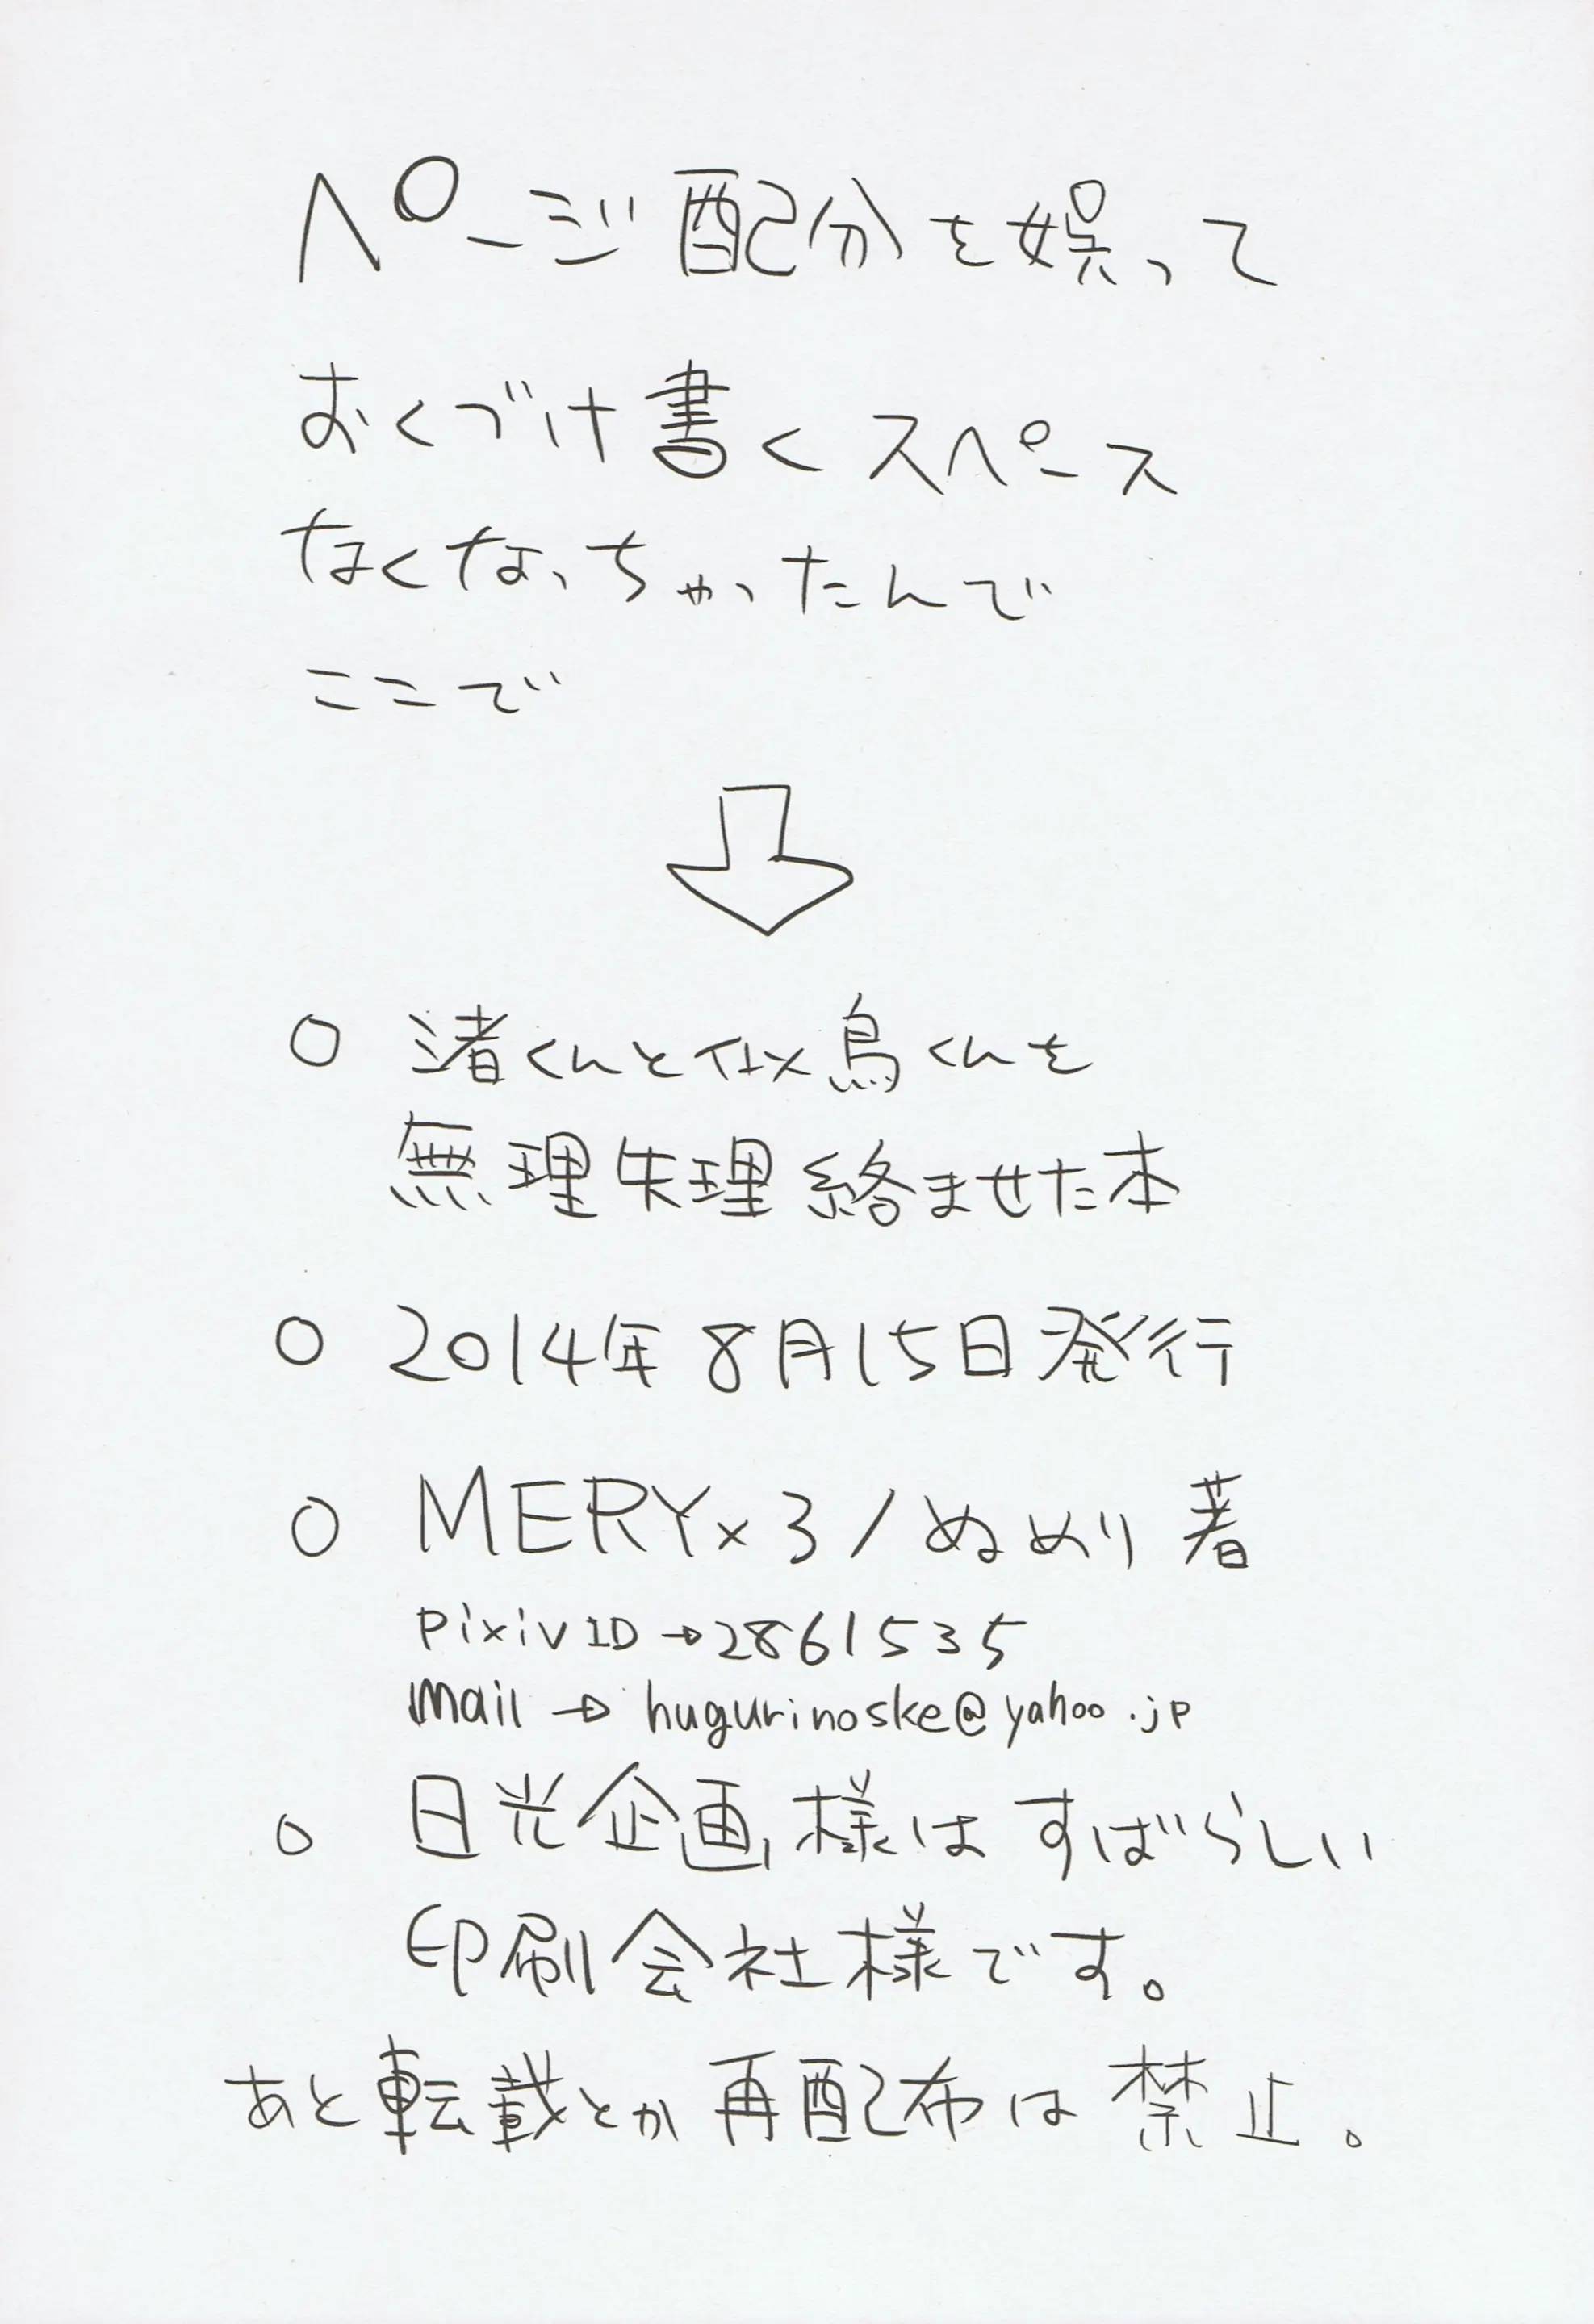 ページ配分を娯って
おくづけ書くスペース
なくなっちゃったんで
ここで
○ 渚くんと似鳥くんを
無理矢理絡ませた本
○ 2014年8月15日発行
○ MERY×3/ぬめり 著
pixiv ID→2861535
mail→hugurinoske@yahoo.jp
○ 日光企画様はすばらしい
印刷会社様です。
あと転載とか再配布は禁止。